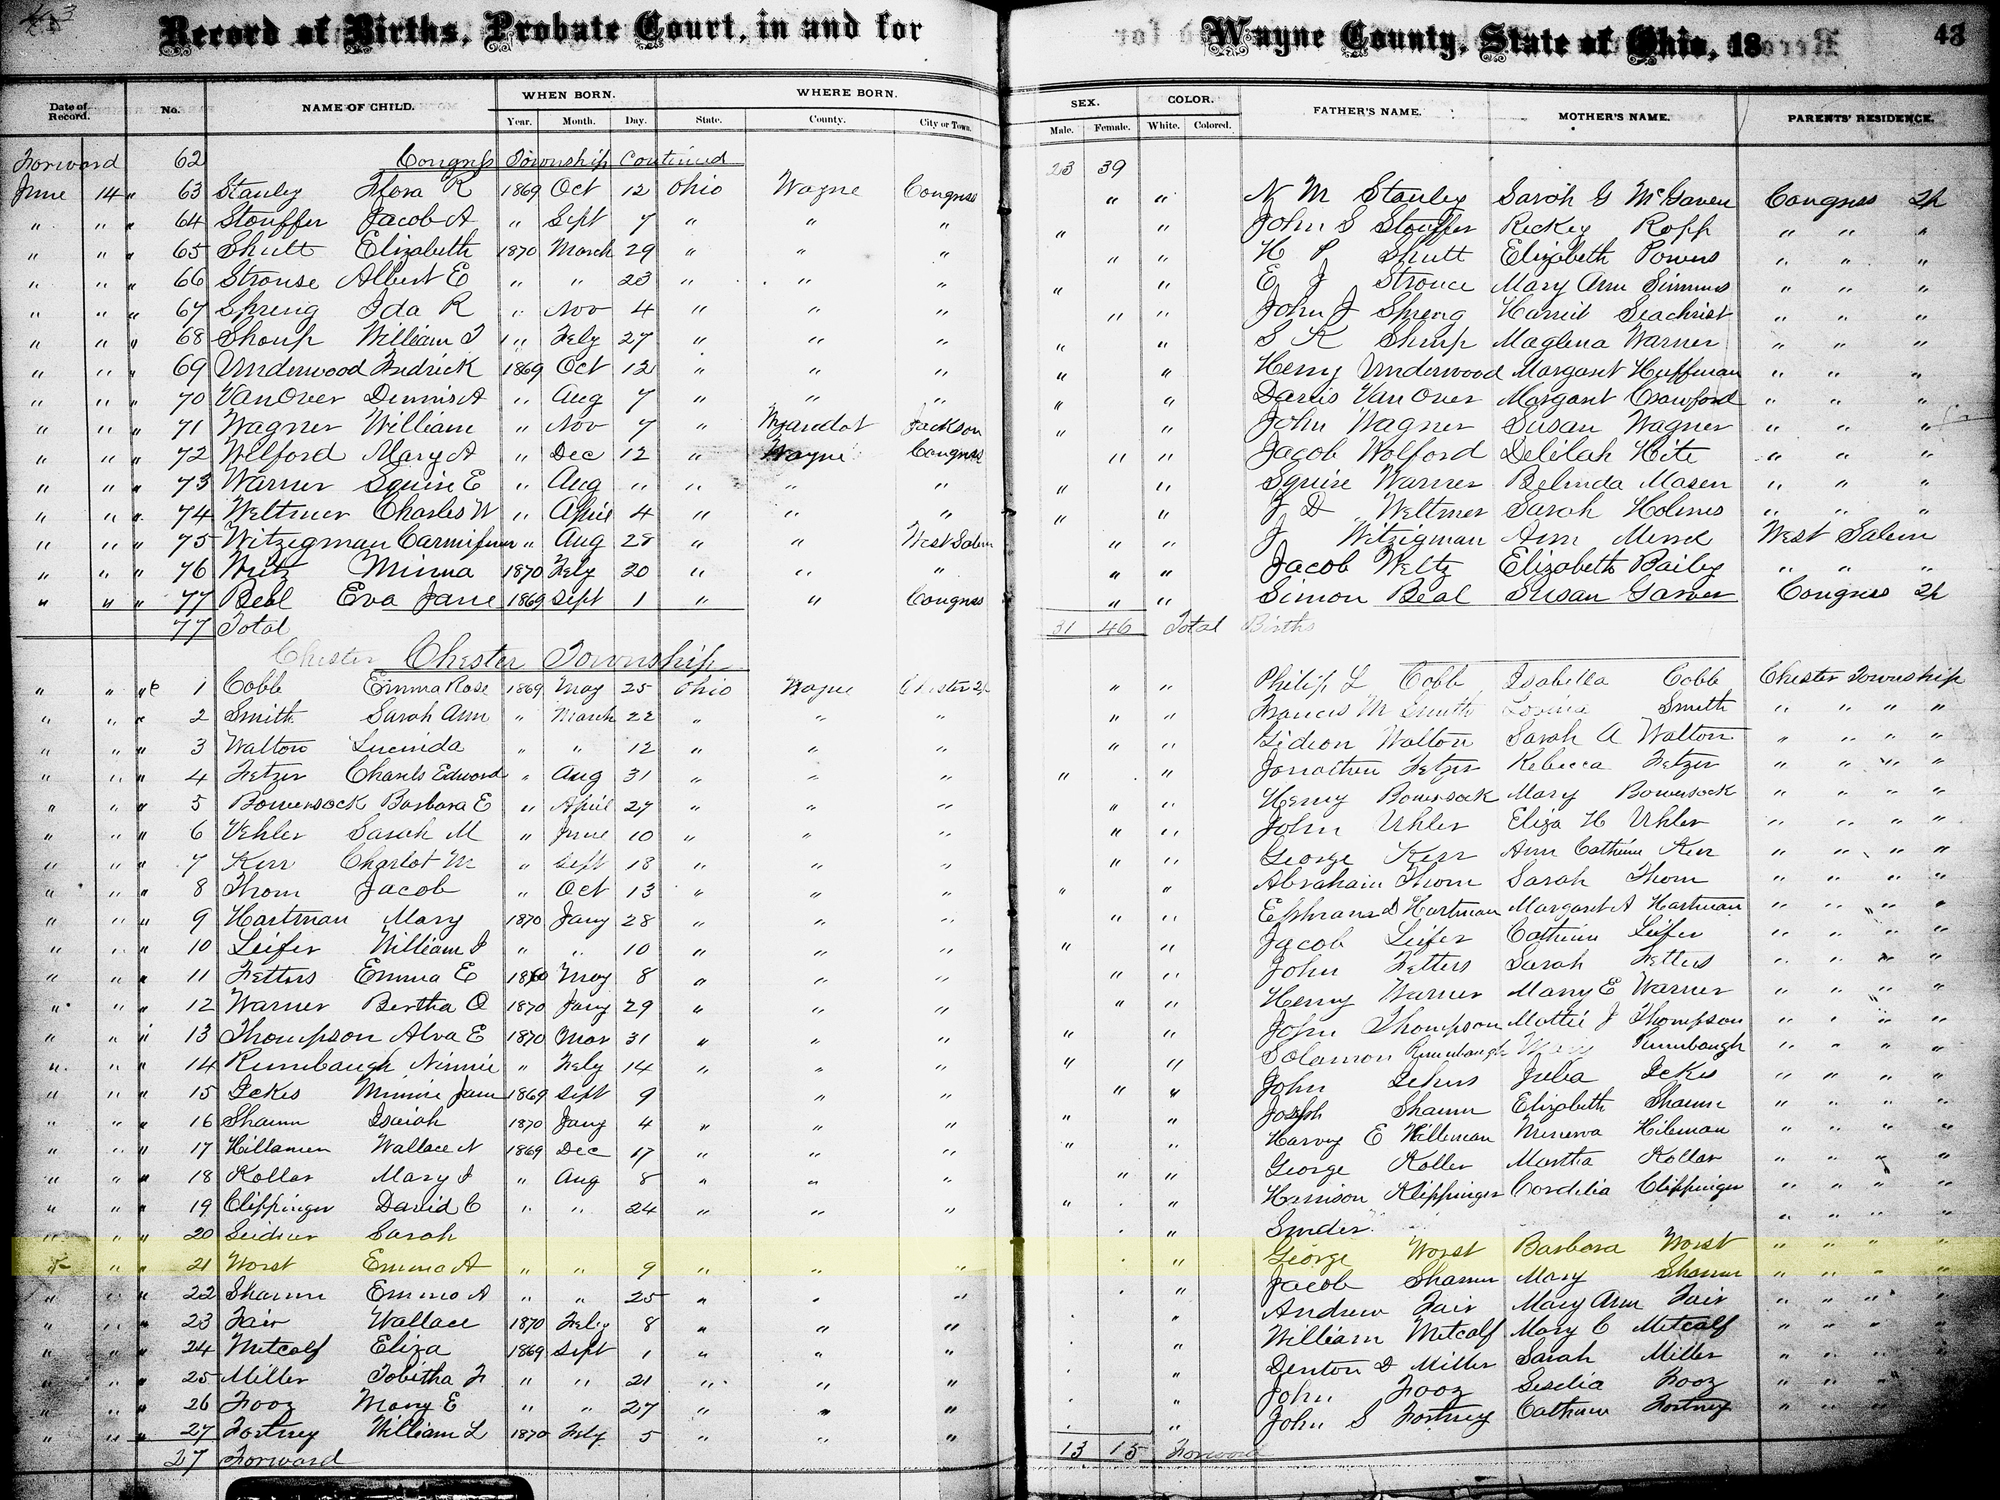 43
Record of Births, Probate Court, in and for Wayne County, State of Ohio, 18
43
Date of Record. No. NAME OF CHILD. WHEN BORN. WHERE BORN. SEX. COLOR. FATHER'S NAME. MOTHER'S NAME. PARENTS' RESIDENCE.
Year. Month. Day. State. County. City or Town. Male. Female. White. Colored.
Forward 62 Congress Township Continued 23 39
June 14 " 63 Stanley Flora R 1869 Oct 12 Ohio Wayne Congress " " N M Stanley Sarah G McGaven Congress
" " " 64 Stouffer Jacob A " Sept 7 " " " " " John S Stouffer Rickey Ropp " " "
" " " 65 Shutt Elizabeth 1870 March 29 " " " " " H P Shutt Elizabeth Powers " " "
" " " 66 Strouse Albert E " " 23 " " " " " E J Strouce Mary Ann Simmus " " "
" " " 67 Spreng Ida R " Nov 4 " " " " " John J Spreng Harriet Seachrist " " "
" " " 68 Shoup William " Feby 27 " " " " " S K Shoup Maglena Warner " " "
" " " 69 Underwood Fredrick 1869 Oct 12 " " " " " Henry Underwood Margaret Huffman " " "
" " " 70 VanOver Dennis A " Aug 7 " " " " " Darius Van Over Margaret Crawford " " "
" " " 71 Wagner William " Nov 7 " Wyandot Jackson " " John Wagner Susan Wagner " " "
" " " 72 Wolford Mary A " Dec 12 " Wayne Congress " " Jacob Wolford Delilah Hite " " "
" " " 73 Warner Squire E " Aug " " " " " " Squire Warner Belinda Mason " " "
" " " 74 Weltmer Charles W " April 4 " " " " " J D Weltmer Sarah Holmes " " "
" " " 75 Witzigman " Aug 28 " " West Salem " " J Witzigman Ann West Salem
" " " 76 Minna 1870 Feby 20 " " " " " Jacob Weltz Elizabeth Bailey " " "
" " " 77 Beal Eva Jane 1869 Sept 1 " " Congress " " Simon Beal Susan Garver Congress
77 Total 31 46 Total Births
Chester Chester Township
" " " 1 Cobb Emma Rose 1869 May 25 Ohio Wayne Chester " " Philip L Cobb Isabella Cobb Chester Township
" " " 2 Smith Sarah Ann " March 22 " " " " " Francis M Smith Smith " " " "
" " " 3 Walton Lucinda " " 12 " " " " " Gideon Walton Sarah A Walton " " " "
" " " 4 Fetzer Charels Edward " Aug 31 " " " " " Jonathen Fetzer Rebecca Fetzer " " " "
" " " 5 Bowersock Barbara E " April 27 " " " " " Henry Bowersock Mary Bowersock " " " "
" " " 6 Uhler Sarah M " June 10 " " " " " John Uhler Eliza H Uhler " " " "
" " " 7 Kerr Charlot M " Sept 18 " " " " " George Kerr Ann Catherine Kerr " " " "
" " " 8 Thom Jacob " Oct 13 " " " " " Abraham Thom Sarah Thom " " " "
" " " 9 Hartman Mary 1870 Jany 28 " " " " " Hartman Margaret A Hartman " " " "
" " " 10 Leifer William " " 10 " " " " " Jacob Leifer Catherine Leifer " " " "
" " " 11 Fetters Emma E May 8 " " " " " John Fetters Sarah Fetters " " " "
" " " 12 Warner Bertha O 1870 Jany 29 " " " " " Henry Warner Mary E Warner " " " "
" " " 13 Thompson Alva E 1870 Mar 31 " " " " " John Thompson Mattie J Thompson " " " "
" " " 14 Rumbaugh Ninnie " Feby 14 " " " " " Solamon Rumbaugh Mary Rumbaugh " " " "
" " " 15 Ickes Minnie Jane 1869 Sept 9 " " " " John Julia Ickes " " " "
" " " 16 Shaum Isaiah 1870 Jany 4 " " " " " Joseph Shaum Elizabeth Shaum " " " "
" " " 17 Wallace N 1869 Dec 17 " " " " " Harvey E Hilleman Minerva Hileman " " " "
" " " 18 Kollar Mary " Aug 8 " " " " " George Koller Martha Kollar " " " "
" " " 19 Clippinger David C " " 24 " " " " " Harrison Klippinger Cordelia Clippinger " " " "
" " " 20 Leidner Sarah " " " " "
" " " 21 Worst Emma A " " 9 " " " " George Worst Barbara Worst " " " "
" " " 22 Shaum Emma A " " 25 " " " " Jacob Shaum Mary Shaum " " " "
" " " 23 Fair Wallace 1870 Feby 8 " " " " Andrew Fair Mary Ann Fair " " " "
" " " 24 Metcalf Eliza 1869 Sept 1 " " " " William Metcalf Mary C Metcalf " " " "
" " " 25 Miller Tobitha " " 21 " " " " Denton D Miller Sarah Miller " " " "
" " " 26 Fooz Mary E " " 27 " " " " John Fooz Fooz " " " "
" " " 27 Fortney William L 1870 Feby 5 " " " " John S Fortney Catharine Fortney " " " "
27 Forward 13 15 Forward